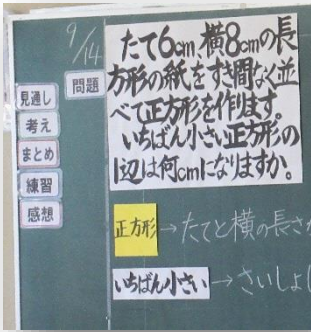 9/14
問題
たて6cm、横8cmの長
方形の紙をすき間なく並
べて正方形を作ります。
いちばん小さい正方形の
1辺は何cmになりますか。
見通し
考え
まとめ
練習
感想
正方形→たてと横の長さが
いちばん小さい→さいしょに